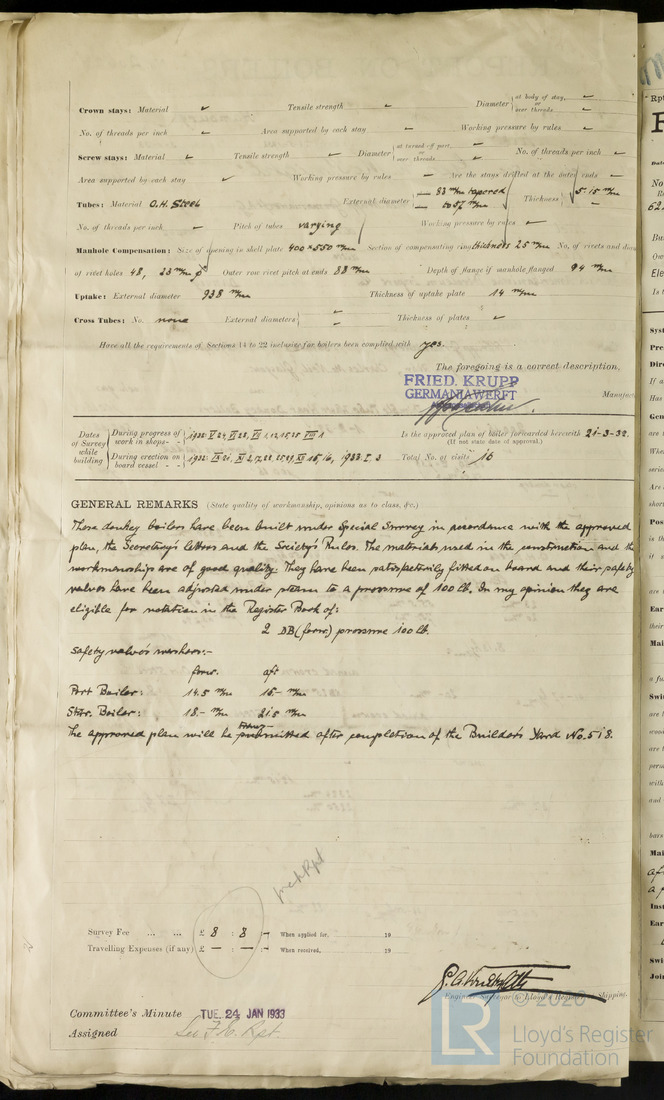 Crown stays: Material ✓ Tensile strength ✓ Diameter { at body of stay, ✓ or over threads ✓
No. of threads per inch ✓ Area supported by each stay ✓ Working pressure by rules ✓
Screw stays: Material ✓ Tensile strength ✓ Diameter { at turned off part, ✓ or over threads ✓ No. of threads per inch ✓
Area supported by each stay ✓ Working pressure by rules ✓ Are the stays drilled at the outer ends ✓
Tubes: Material O.H. Steel External diameter { 83 m/m tapered to 57 m/m Thickness { 5.15 m/m
No. of threads per inch ✓ Pitch of tubes varying Working pressure by rules ✓
Manhole Compensation: Size of opening in shell plate 400 × 550 m/m Section of compensating ring thickness 25 m/m No. of rivets and diam
of rivet holes 48, 23 m/m ø Outer row rivet pitch at ends 88 m/m Depth of flange if manhole flanged 94 m/m
Uptake: External diameter 938 m/m Thickness of uptake plate 14 m/m
Cross Tubes: No. none External diameters { ✓ Thickness of plates ✓
Have all the requirements of Sections 14 to 22 inclusive for boilers been complied with yes.
The foregoing is a correct description,
FRIED. KRUPP
GERMANIAWERFT
Manufac
Dates of Survey while building
During progress of work in shops - - 1932: V 24, VI 28, VII 1, 12, 15, 25 VIII 1
Is the approved plan of boiler forwarded herewith 21-3-32.
(If not state date of approval.)
During erection on board vessel - - 1932: IX 21, XI 2, 17, 22, 25, 29, XII 15, 16, 1933: I. 3 Total No. of visits 16
GENERAL REMARKS (State quality of workmanship, opinions as to class, &c.)
These donkey boilers have been built under Special Survey in accordance with the approved
plan, the Secretary's letters and the Society's Rules. The materials used in the construction and the
workmanships are of good quality. They have been satisfactorily fitted on board and their safety
valves have been adjusted under steam to a pressure of 100 lb. In my opinion they are
eligible for notation in the Register Book of:
2 DB (forw.) pressure 100 lb.
Safety valves washers:-
forw. aft
Port Boiler: 14.5 m/m 16.- m/m
Star. Boiler: 18.- m/m 21.5 m/m
The approved plan will be submitted after completion of the Builder's Yard No. 518.
Survey Fee ... ... £ 8 : 8 : - When applied for, 19
Travelling Expenses (if any) £ - : - : - When received, 19
Engineer Surveyor to Lloyd's Register of Shipping.
Committee's Minute TUE. 24 JAN 1933
Assigned See F.E. Rpt.
© 2020
LR
Lloyd's Register
Foundation